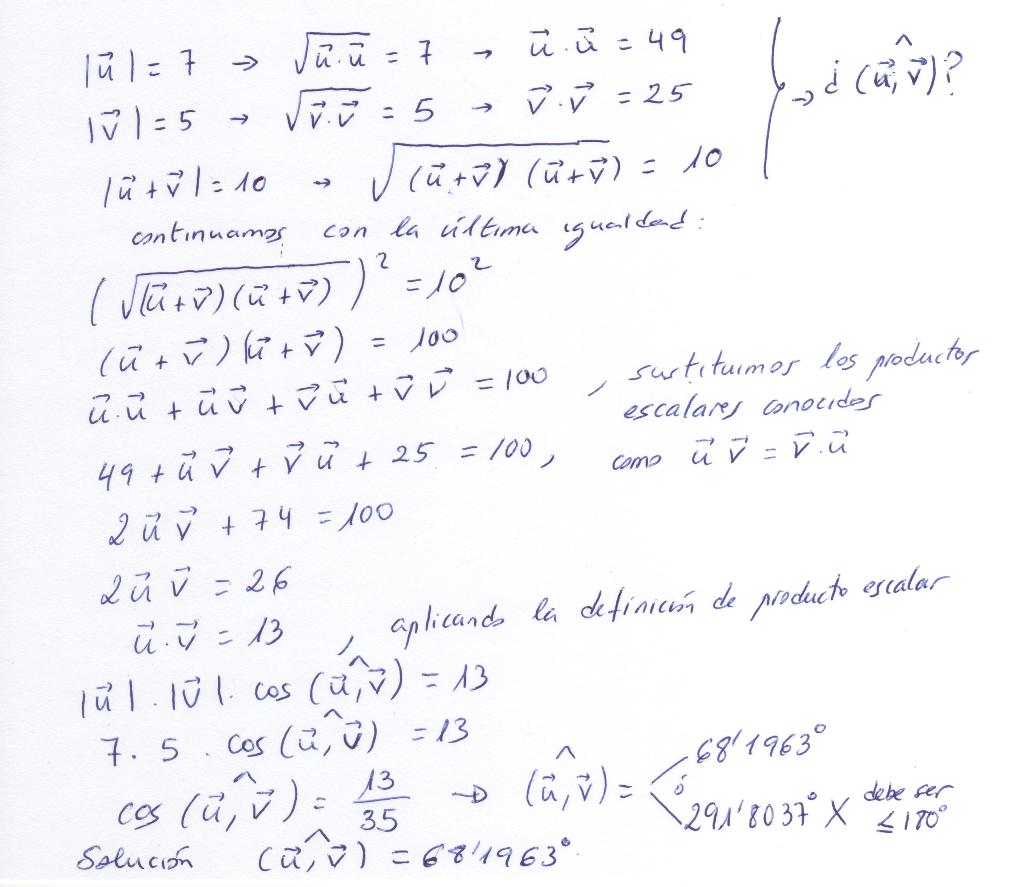 |u⃗| = 7 → √(u⃗·u⃗) = 7 → u⃗·u⃗ = 49
|v⃗| = 5 → √(v⃗·v⃗) = 5 → v⃗·v⃗ = 25
→ ¿(u⃗,^v⃗)?
|u⃗+v⃗| = 10 → √((u⃗+v⃗)(u⃗+v⃗)) = 10
continuamos con la última igualdad:
(√((u⃗+v⃗)(u⃗+v⃗)))² = 10²
(u⃗+v⃗)(u⃗+v⃗) = 100
u⃗·u⃗ + u⃗v⃗ + v⃗u⃗ + v⃗v⃗ = 100, sustituimos los productos
escalares conocidos
49 + u⃗v⃗ + v⃗u⃗ + 25 = 100, como u⃗v⃗ = v⃗·u⃗
2u⃗v⃗ + 74 = 100
2u⃗v⃗ = 26
u⃗·v⃗ = 13, aplicando la definición de producto escalar
|u⃗|·|v⃗|·cos(u⃗,^v⃗) = 13
7·5·cos(u⃗,^v⃗) = 13
cos(u⃗,^v⃗) = 13/35 → (u⃗,^v⃗) = 68'1963°
ó
291'8037° X debe ser
≤180°
Solución (u⃗,^v⃗) = 68'1963°.